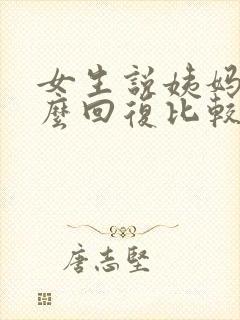 女生說姨媽
麼回復比較
唐志堅